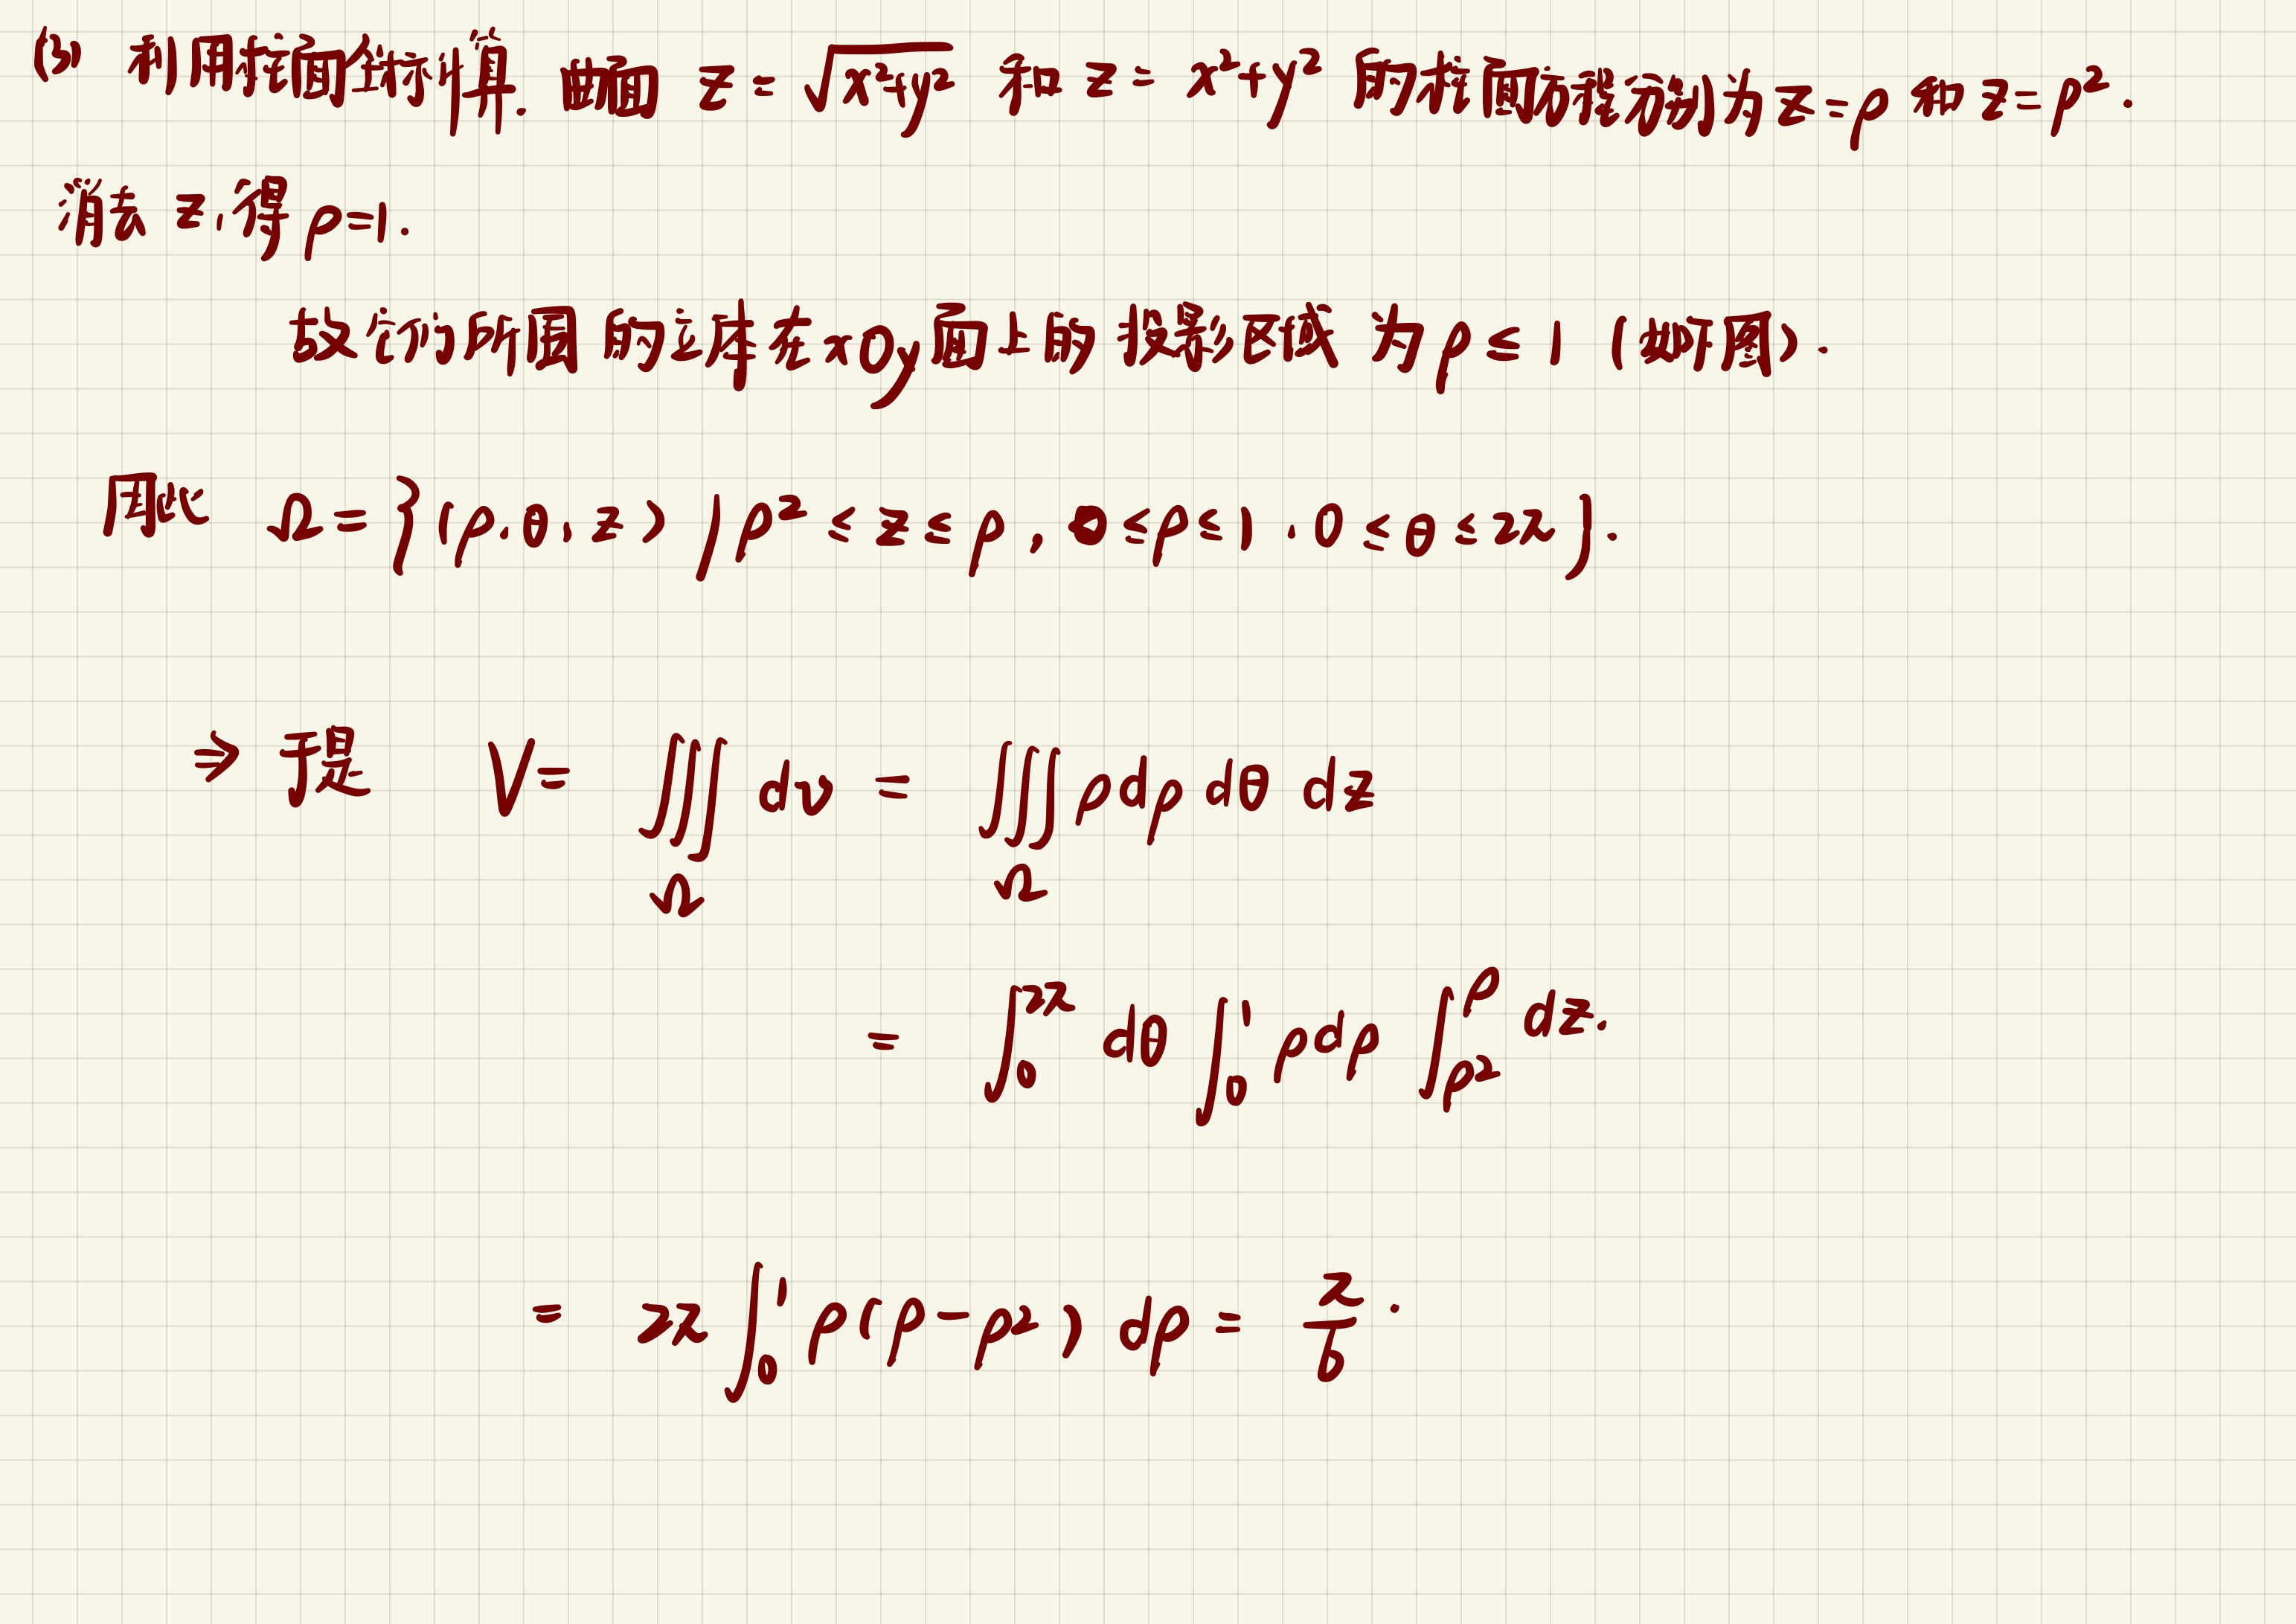 (3) 利用柱面坐标计算. 曲面 z = √(x²+y²) 和 z = x²+y² 的柱面方程分别为 z=ρ 和 z=ρ².
消去 z, 得 ρ=1.
故它们所围的立体在 xOy 面上的投影区域为 ρ ≤ 1 (如下图).
因此 Ω = {(ρ, θ, z) | ρ² ≤ z ≤ ρ, 0 ≤ ρ ≤ 1, 0 ≤ θ ≤ 2π}.
⇒ 于是 V = ∭_Ω dv = ∭_Ω ρ dρ dθ dz
= ∫₀^{2π} dθ ∫₀¹ ρ dρ ∫_{ρ²}^{ρ} dz.
= 2π ∫₀¹ ρ(ρ-ρ²) dρ = π/6.